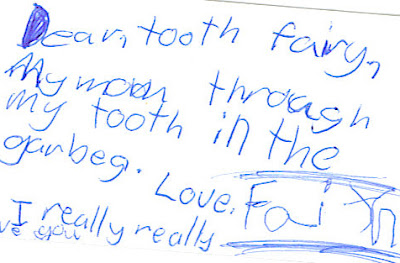 Dear, tooth fairy,
My mom through
my tooth in the
garbeg. Love, Faith
I really really
ve you